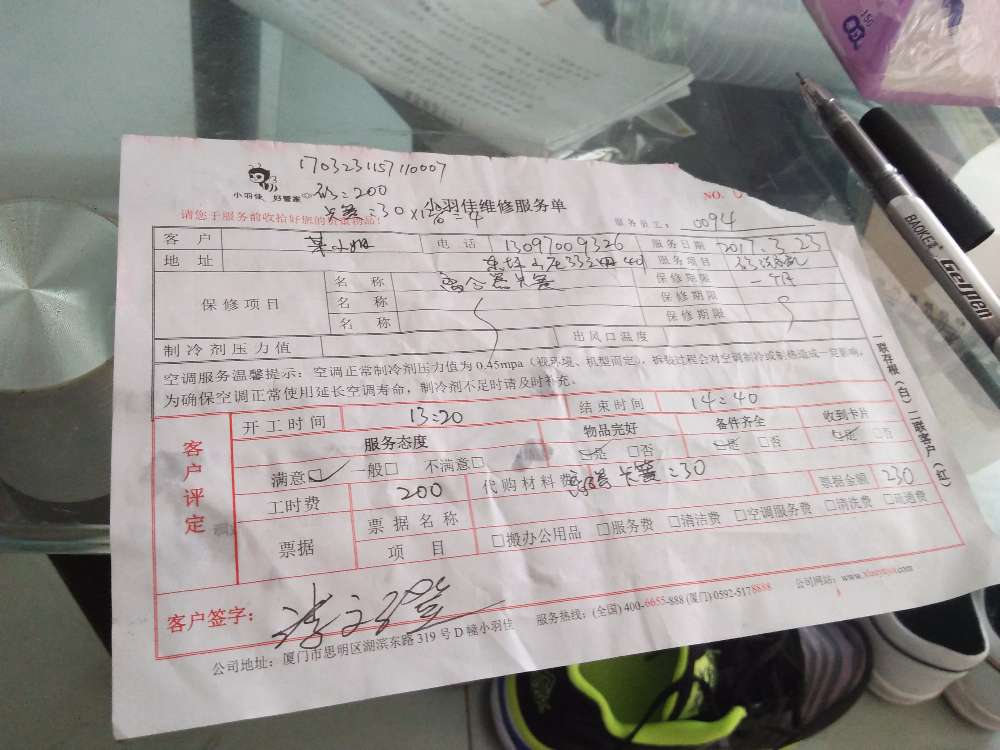 1703231157110007
=200
小羽佳 好管家
小羽佳维修服务单
NO.
请您于服务前收拾好您的贵重物品!
=30
服务员工: 0094
客户 电话 13097009326 服务日期 2017.3.23
地址 服务项目
保修项目 名称 离合器卡簧 保修期限 一个月
名称 保修期限
名称 保修期限
制冷剂压力值 出风口温度
空调服务温馨提示:空调正常制冷剂压力值为0.45mpa(视环境、机型而定),拆装过程会对空调制冷或制热造成一定影响,
为确保空调正常使用延长空调寿命,制冷剂不足时请及时补充。
客户评定
开工时间 13:20 结束时间 14:40
服务态度 物品完好 备件齐全 收到卡片
满意□ 一般□ 不满意□ □是 □否 □是 □否 □是 □否
工时费 200 代购材料费 卡簧=30 票据金额 230
票据 票据名称
项目 □搬办公用品 □服务费 □清洁费 □空调服务费 □清洗费 □疏通费
客户签字:
公司地址:厦门市思明区湖滨东路319号D幢小羽佳 服务热线:(全国)400-6655-888 (厦门)0592-5178888 公司网站:www.xiaoyujia.com
一联存根(白)二联客户(红)
BAOKE
Gel pen
150